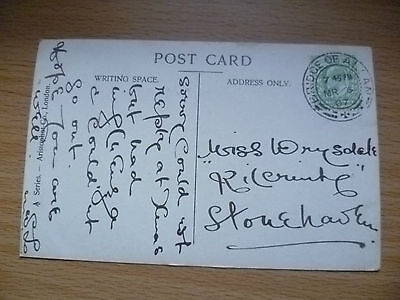 POST CARD
WRITING SPACE.
ADDRESS ONLY.
BRIDGE OF ALLAN
7 45 PM
07
Sorry could not
reply at Xmas
but had
influenza
& could not
go out.
Hope you are
well
Series. – Artistique Co., London.
"Miss Drysdale
Stonehaven